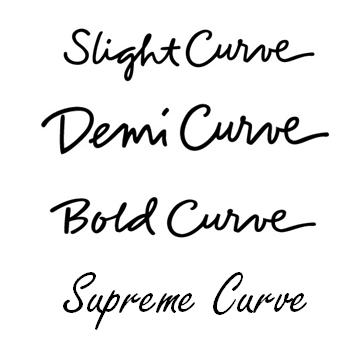 Slight Curve
Demi Curve
Bold Curve
Supreme Curve